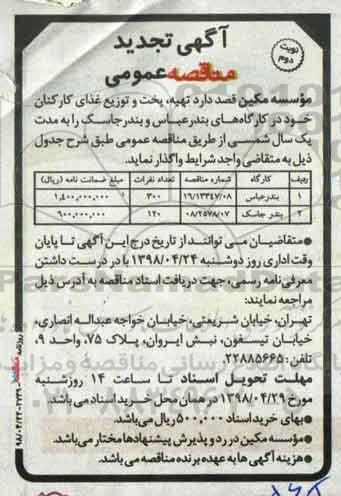 آگهی تجدید
نوبت دوم
مناقصه عمومی
مؤسسه مکین قصد دارد تهیه، پخت و توزیع غذای کارکنان
خود در کارگاه‌های بندرعباس و بندرجاسک را به مدت
یک سال شمسی از طریق مناقصه عمومی طبق شرح جدول
ذیل به متقاضی واجد شرایط واگذار نماید.
ردیف کارگاه شماره مناقصه تعداد نفرات مبلغ ضمانت نامه (ریال)
۱ بندرعباس ۱۹/۱۳۳۴۷/۰۸ ۳۰۰ ۱,۴۰۰,۰۰۰,۰۰۰
۲ بندر جاسک ۰۸/۲۵۷۸/۰۷ ۱۲۰ ۹۰۰,۰۰۰,۰۰۰
●متقاضیـان مـی توانـنـد از تاریخ درج ایـن آگهی تـا پایان
وقت اداری روز دوشـنبه ۱۳۹۸/۰۴/۲۴ با در درسـت داشتن
معرفی نامه رسمی، جهت دریافت اسناد مناقصه به آدرس ذیل
مراجعه نمایند:
تهـران، خیابان شـریعتی، خیابـان خواجه عبدالـه انصاری،
خیابان تیـسـفون، نبـش ایـروان، پـلاک ۷۵، واحد ۹،
تلفن: ۲۲۸۸۵۶۶۵
مهلت تحویـل اسـناد تا ساعت ۱۴ روزشنبه
مورخ ۱۳۹۸/۰۴/۲۹ در همان محل خرید اسناد می باشد.
●بهای خرید اسناد ۵۰۰,۰۰۰ ریال می باشد.
●مؤسسه مکین در رد و پذیرش پیشنهادها مختار می‌باشد.
●هزینه آگهی ها به عهده برنده مناقصه می باشد.
روزنامه
۹۸/۰۴/۲۲-۲۷۳۹